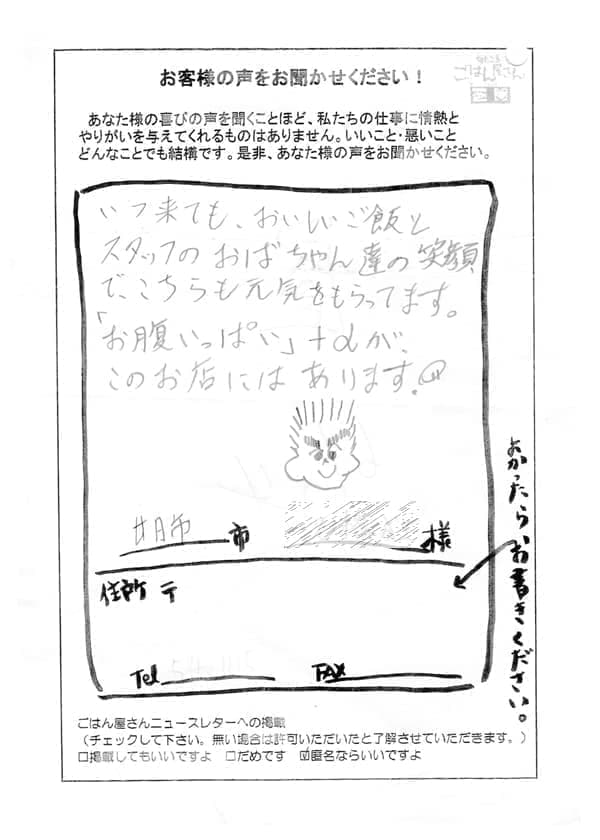 お客様の声をお聞かせください！
ごはん屋さん
あなた様の喜びの声を聞くことほど、私たちの仕事に情熱と
やりがいを与えてくれるものはありません。いいこと・悪いこと
どんなことでも結構です。是非、あなた様の声をお聞かせください。
いつ来ても、おいしいご飯と
スタッフのおばちゃん達の笑顔
で、こちらも元気をもらってます。
「お腹いっぱい」+αが、
このお店にはあります。
廿日市 市 様
よかったらお書きください。
住所 〒
Tel FAX
ごはん屋さんニュースレターへの掲載
（チェックして下さい。無い場合は許可いただいたと了解させていただきます。）
□掲載してもいいですよ □だめです ☑匿名ならいいですよ